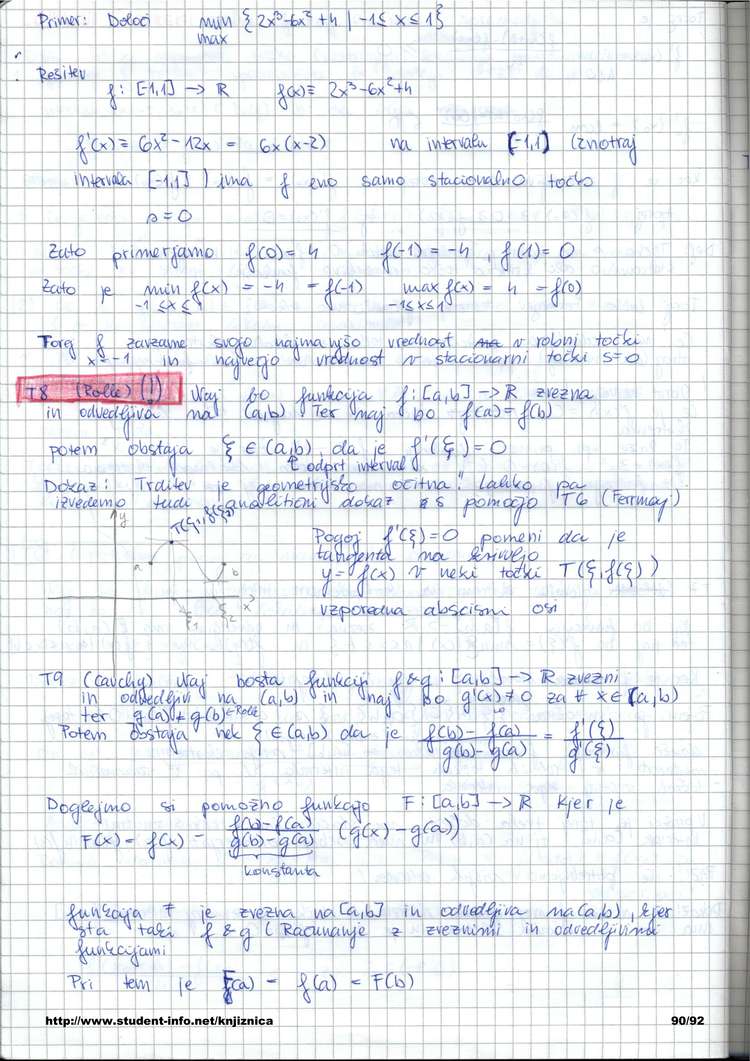 Primer: Določi min {2x³-6x²+4 | -1≤ x ≤ 1}
max
Rešitev
f: [-1,1] → R f(x)= 2x³-6x²+4
f'(x) = 6x²-12x = 6x(x-2) na intervalu [-1,1] (znotraj
intervala [-1,1]) ima f eno samo stacionalno točko
s=0
Zato primerjamo f(0)=4 f(-1)=-4, f(1)=0
Zato je min f(x) = -4 = f(-1) max f(x) = 4 = f(0)
-1≤x≤1 -1≤x≤1
Torej f zavzame svojo najmanjšo vrednost v robni točki
x=-1 in največjo vrednost v stacionarni točki s=0
T8 (Rolle) (!) Naj bo funkcija f: [a,b] → R zvezna
in odvedljiva na (a,b) Ter naj bo f(a)=f(b)
potem obstaja ξ ∈ (a,b), da je f'(ξ)=0
↑ odprt interval
Dokaz: Trditev je geometrijsko očitna. Lahko pa
izvedemo tudi analitični dokaz s pomočjo T6 (Fermaj)
y
T(ξ,f(ξ))
a b
ξ1 ξ2 x
Pogoj f'(ξ)=0 pomeni da je
tangenta na krivuljo
y=f(x) v neki točki T(ξ,f(ξ))
vzporedna abscisni osi
T9 (Cauchy) Naj bosta funkciji f & g: [a,b] → R zvezni
in odvedljivi na (a,b) in naj bo g'(x)≠0 za ∀ x∈(a,b)
ter g(a)≠g(b) ←Rolle
Potem obstaja nek ξ ∈ (a,b) da je f(b)-f(a) / g(b)-g(a) = f'(ξ) / g'(ξ)
Poglejmo si pomožno funkcijo F: [a,b] → R kjer je
F(x) = f(x) - f(b)-f(a) / g(b)-g(a) (g(x)-g(a))
konstanta
funkcija F je zvezna na [a,b] in odvedljiva na (a,b), kjer
sta taki f & g (Računanje z zveznimi in odvedljivimi
funkcijami
Pri tem je F(a) = f(a) = F(b)
http://www.student-info.net/knjiznica 90/92